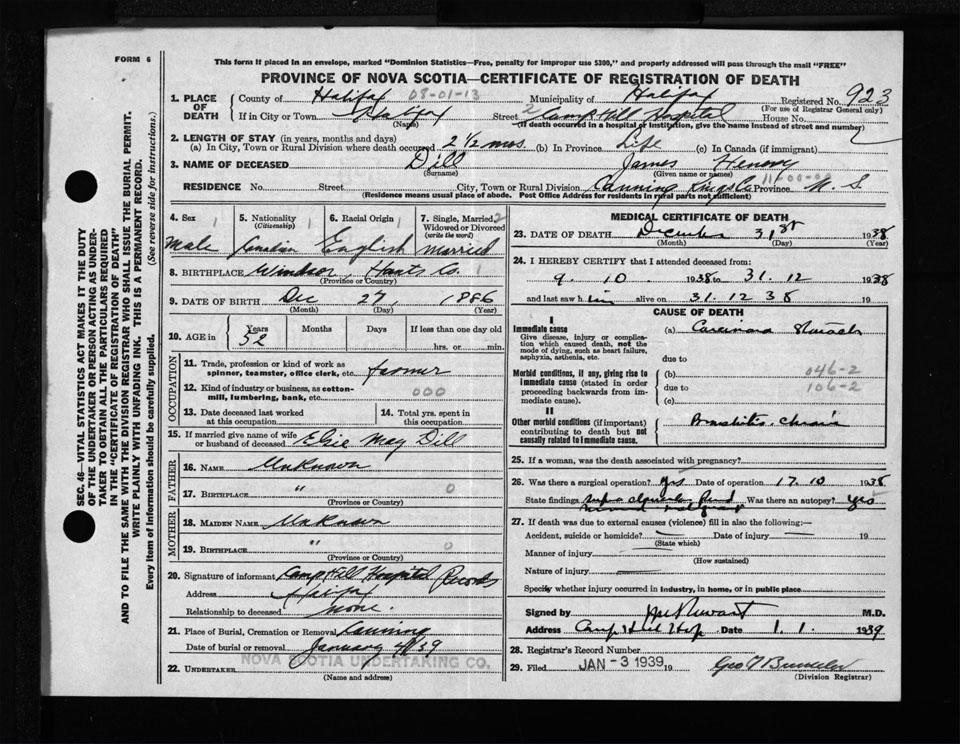 FORM 6
This form if placed in an envelope, marked "Dominion Statistics—Free, penalty for improper use $300," and properly addressed will pass through the mail "FREE"
PROVINCE OF NOVA SCOTIA—CERTIFICATE OF REGISTRATION OF DEATH
1. PLACE OF DEATH
County of Halifax 08-01-13 Municipality of Halifax Registered No. 923
(For use of Registrar General only)
If in City or Town Halifax Street 2 Camp Hill Hospital House No.
(Name) (If death occurred in a hospital or institution, give the name instead of street and number)
2. LENGTH OF STAY (in years, months and days)
(a) In City, Town or Rural Division where death occurred 2 1/2 mos. (b) In Province Life (c) In Canada (if immigrant)
3. NAME OF DECEASED Dill James Henery
(Surname) (Given name or names)
RESIDENCE No. Street City, Town or Rural Division Canning Kings Co Province N. S
(Residence means usual place of abode. Post Office Address for residents in rural parts not sufficient)
4. Sex 1
Male
5. Nationality (Citizenship) 1
Canadian
6. Racial Origin 1
English
7. Single, Married, Widowed or Divorced (write the word) 2
Married
8. BIRTHPLACE Windsor, Hants Co. 1
(Province or Country)
9. DATE OF BIRTH Dec 27, 1886
(Month) (Day) (Year)
10. AGE in Years 52 Months Days If less than one day old
hrs. or min.
OCCUPATION
11. Trade, profession or kind of work as spinner, teamster, office clerk, etc. farmer
12. Kind of industry or business, as cotton-mill, lumbering, bank, etc. 000
13. Date deceased last worked at this occupation
14. Total yrs. spent in this occupation
15. If married give name of wife or husband of deceased Elsie May Dill
FATHER
16. NAME Unknown
17. BIRTHPLACE " 0
(Province or Country)
MOTHER
18. MAIDEN NAME Unknown
19. BIRTHPLACE " 0
(Province or Country)
20. Signature of informant Camp Hill Hospital Records
Address Halifax
Relationship to deceased none.
21. Place of Burial, Cremation or Removal Canning
Date of burial or removal January 4/39
22. UNDERTAKER NOVA SCOTIA UNDERTAKING CO.
(Name and address)
MEDICAL CERTIFICATE OF DEATH
23. DATE OF DEATH December 31st 1938
(Month) (Day) (Year)
24. I HEREBY CERTIFY that I attended deceased from:
9. 10 1938 to 31. 12 1938
and last saw him alive on 31. 12 38 19
CAUSE OF DEATH
I
Immediate cause
Give disease, injury or complication which caused death, not the mode of dying, such as heart failure, asphyxia, asthenia, etc.
(a) Carcinoma Stomach
due to
Morbid conditions, if any, giving rise to immediate cause (stated in order proceeding backwards from immediate cause).
(b) 046-2
due to 106-2
(c)
II
Other morbid conditions (if important) contributing to death but not causally related to immediate cause.
Bronchitis - Chronic
25. If a woman, was the death associated with pregnancy?
26. Was there a surgical operation? yes Date of operation 17. 10 1938
State findings Was there an autopsy? yes
27. If death was due to external causes (violence) fill in also the following:—
Accident, suicide or homicide? Date of injury 19
(State which)
Manner of injury
(How sustained)
Nature of injury
Specify whether injury occurred in industry, in home, or in public place
Signed by M.D.
Address Camp Hill Hosp. Date 1. 1. 1939
28. Registrar's Record Number
29. Filed JAN - 3 1939 19
(Division Registrar)
SEC. 46—VITAL STATISTICS ACT MAKES IT THE DUTY
OF THE UNDERTAKER OR PERSON ACTING AS UNDER-
TAKER TO OBTAIN ALL THE PARTICULARS REQUIRED
IN THE "CERTIFICATE OF REGISTRATION OF DEATH"
AND TO FILE THE SAME WITH THE DIVISION REGISTRAR WHO SHALL ISSUE THE BURIAL PERMIT.
WRITE PLAINLY WITH UNFADING INK. THIS IS A PERMANENT RECORD.
Every item of Information should be carefully supplied. (See reverse side for instructions.)